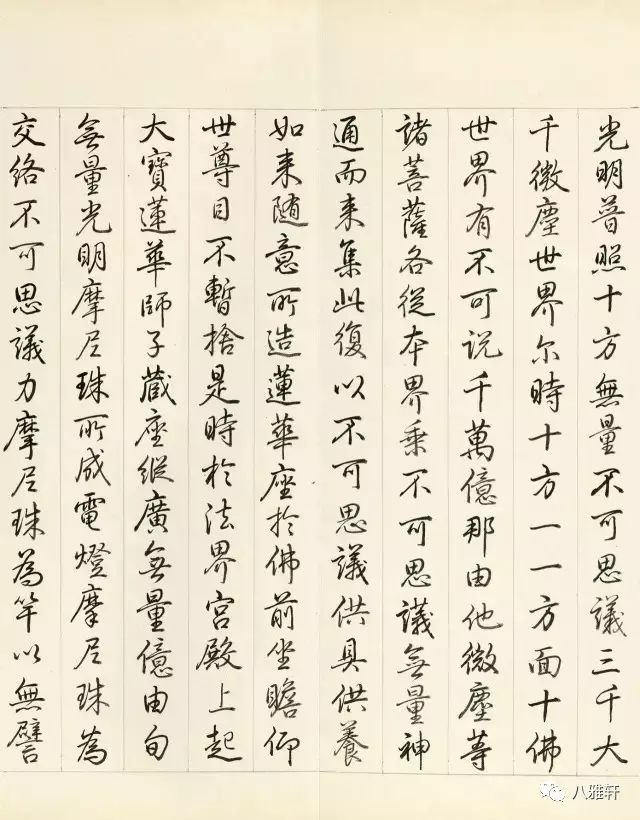 光明普照十方無量不可思議三千大
千微塵世界尔時十方一一方面十佛
世界有不可说千萬億那由他微塵等
諸菩薩各從本界乘不可思議無量神
通而来集此復以不可思議供具供養
如来随意所造蓮華座於佛前坐瞻仰
世尊目不暫捨是時於法界宮殿上起
大寶蓮華師子藏座縱廣無量億由旬
無量光明摩尼珠所成電燈摩尼珠為
交絡不可思議力摩尼珠為竿以無譬
八雅轩